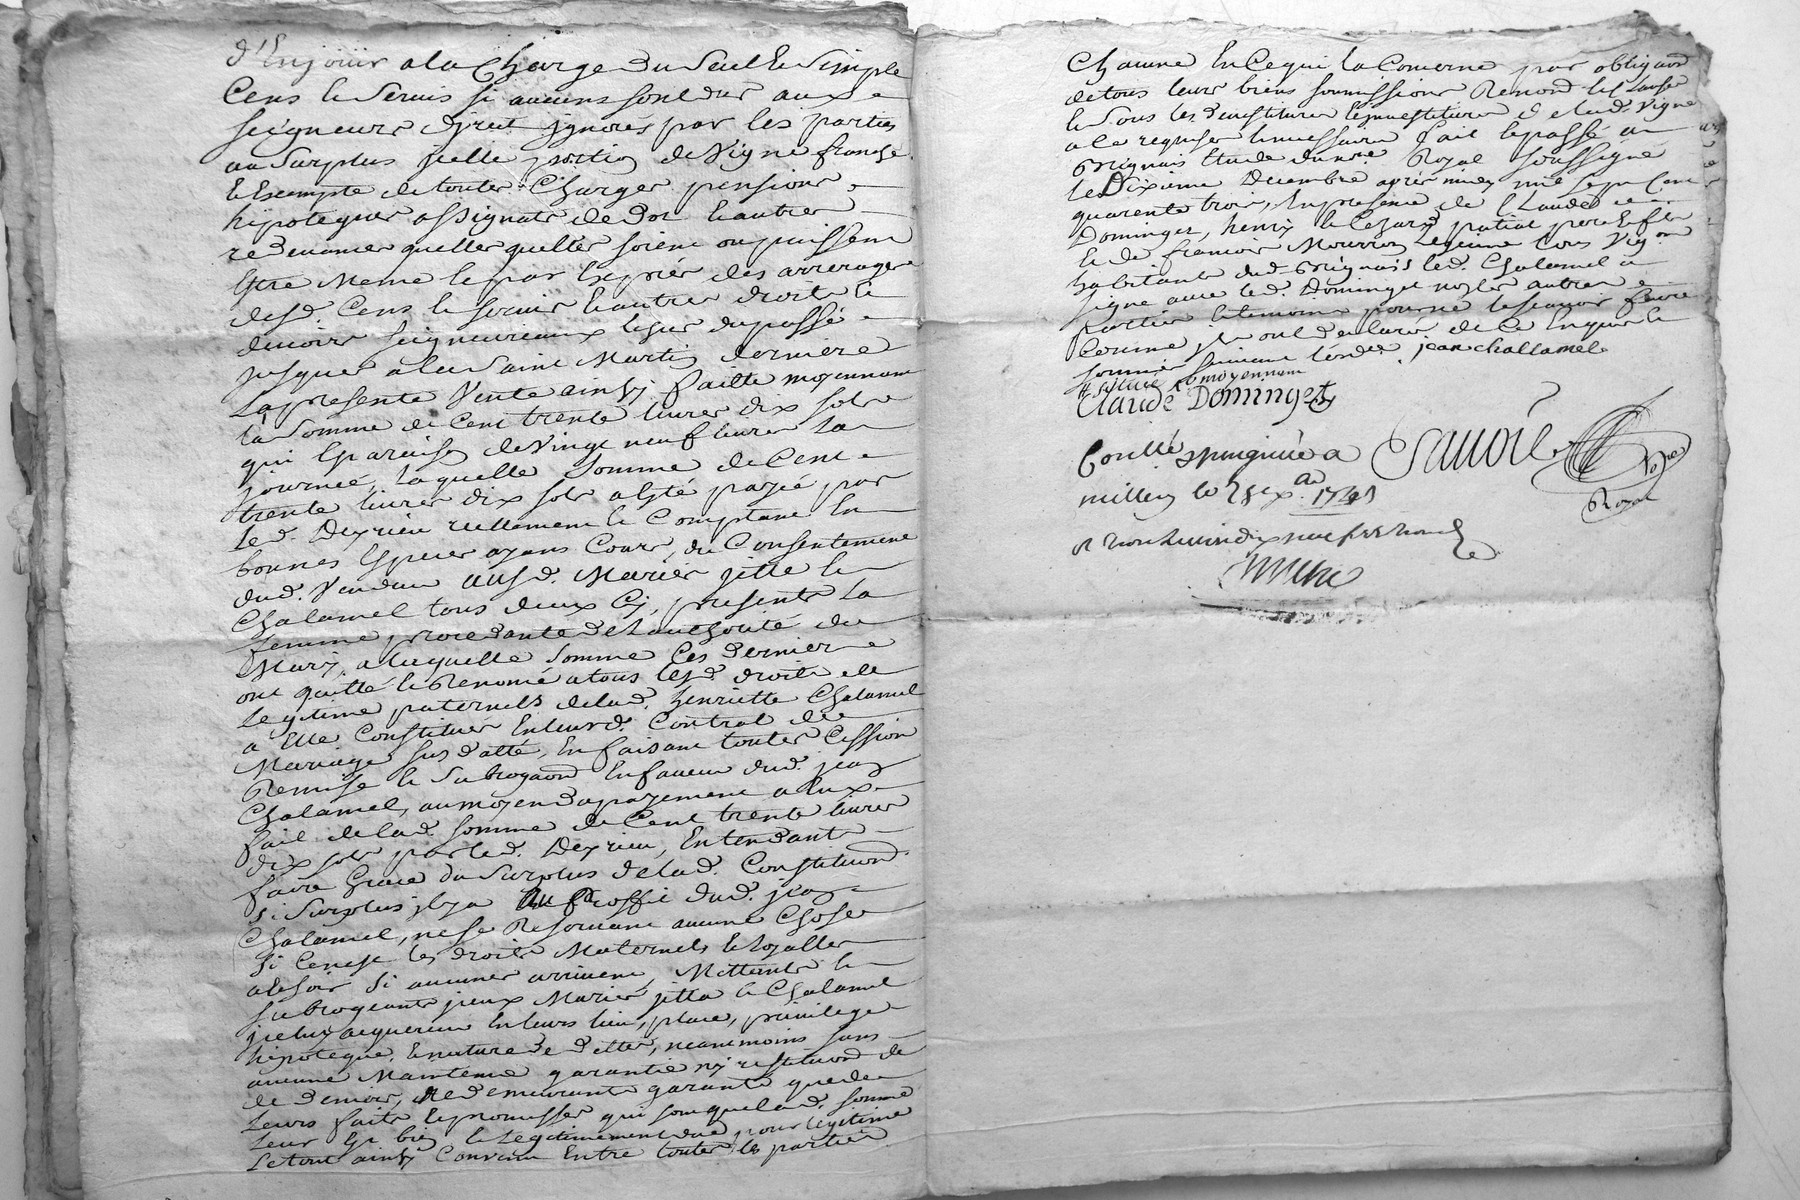 d'Enjouir a la Charge du Seul Et Simple
Cens et Servis si aucuns sont dus aux
seigneurs direct ignorés par les parties
au Surplus jcelle portion de Vigne franche
Et Exempte de toutes Charges pensions
hipoteques assignats de dot Et autres
redevances quelles quelles soient ou puissent
Estre Meme Et par Exprés des arrerages
desd. Cens Et servis Et autres droits Et
devoirs seigneuriaux Echus du passé
jusques a la Saint Martin derniere
La presente Vente ainsy faitte moyennant
la Somme de Cent trente livres dix sols
qui Est a raison de Vingt neuf livres La
journée, Laquelle Somme de Cent
trente livres dix sols a Esté payée par
led. Deyrieu reellement Et Comptant En
bonnes Especes ayans Cours, du Consentement
dud. Vendeur aux d. Mariés jitte Et
Chalamel tous deux Cy presents La
femme procedante de Lauthorité du
Mary, a laquelle somme Ces derniers
ont quitté Et Renoncé a tous Les d. droits de
Legitime paternels de lad. henriette Chalamel
a Elle Constitués En leurd. Contrat de
Mariage sus datté, En faisant toutes Cession
Remise Et Subrogaon En faveur dud. jean
Chalamel, au moyen du payement a Eux
fait de lad. somme de Cent trente livres
dix sols par led. Deyrieu, Entendants
faire Grace du Surplus de lad. Constituon
si Surplus jl y a Au Proffit dud. jean
Chalamel, ne se Reservant aucune Chose
si Ce n'est les droits Maternels Et loyalles
a Echoir si aucunes arrivent, Mettants Et
subrogeants jceux Mariés jitta Et Chalamel
jceluy acquereur En leurs lieu, place, privilege
hipoteque, Et nature de dettes, neantmoins sans
aucune Maintenue garantie ny restituon de
de deniers, Ne demeurants garants que de
Leurs faits Et promesses qui sont que lad. somme
Leur Est bien Et Legitimement due pour legitime
Le tout ainsy Convenu Entre toutes les parties
Chacune En Ce qui La Concerne par obligaon
de tous leurs biens soumissions Renonc. Et Clauses
Et Sous les d'investitures
a la requise Et necessaires fait Et passé au
Brignais Etude du nore. Royal soussigné
le Dixieme Decembre aprés midy mil sept Cent
quarente trois, En presence de Claude
Dominget, henry
Et de francois Mourron
habitants dud. Brignais led. Chalamel a
signé avec led. Dominget non les autres
parties Et temoins pour ne le scavoir faire
Comme jls ont declaré de Ce Enquis Et
sommés suivant Lordce. jean challamel
Claude Dominget
Conllé a Savoie Nore
millery le 1743 Royal